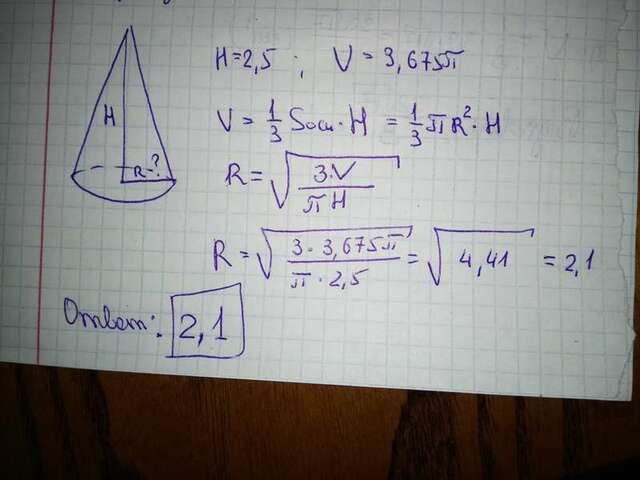 H
R-?
H = 2,5 ; V = 3,675π
V = 1/3 Sосн · H = 1/3 πR² · H
R = √(3·V / πH)
R = √(3·3,675π / π·2,5) = √4,41 = 2,1
Ответ: 2,1